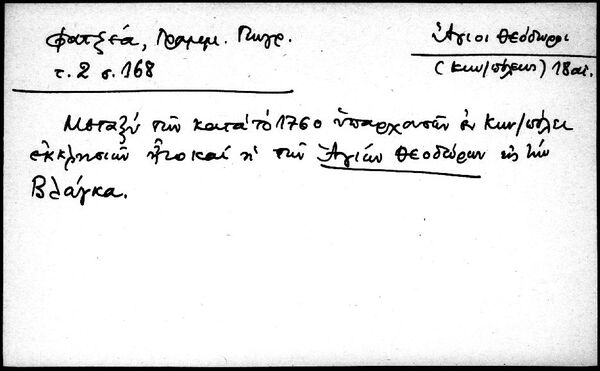 Φατζεά, Γραμμ. Πνγρ.
τ. 2 σ. 168
Ἅγιοι Θεόδωροι
(Κων/πόλεως) 18 αἰ.
Μεταξύ τῶν κατά τό 1760 ὑπαρχουσῶν ἐν Κων/πόλει
ἐκκλησιῶν ἦτο καί ἡ τῶν Ἁγίων Θεοδώρων εἰς τήν
Βλάγκα.